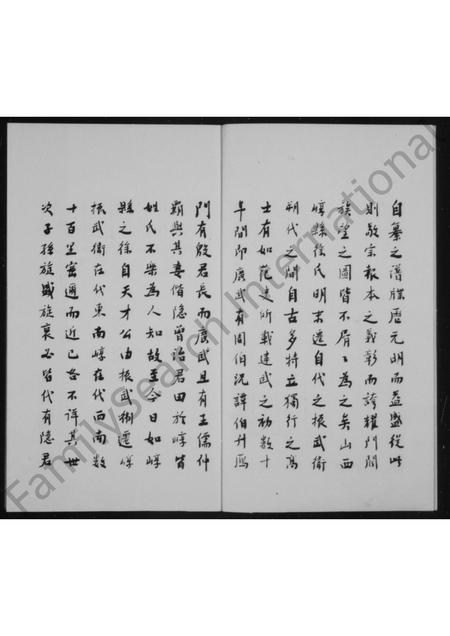 自纂之譜牒歷元明而益盛從此
則敬宗報本之義彰而誇耀門閥
族望之圖皆不屑﹅為之矣山西
崞縣徐氏明末遷自代之振武衛
朔代之間自古多特立獨行之高
士有如范史所載建武之初數十
年間即廣武有周伯況譚伯升雁
門有殷君長而廣武且有王儒仲
霸與其妻偕隱曾治君田於崞皆
姓氏不樂為人知故至今日如崞
縣之徐自天才公由振武衛遷崞
振武衛在代東南崞在代西南數
十百里密邇而近已忘不詳其世
次子孫族盛族衰必皆代有隱君
FamilySearch International